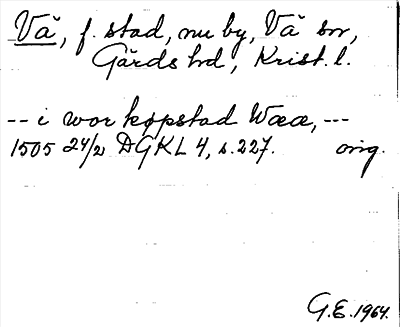 Vä, f. stad, nu by, Vä sn,
Gärds hd, Krist. l.
-- i wor køpstad Wææ, ---
1505 24/2 DGKL 4, s. 227. orig.
G.E. 1964.